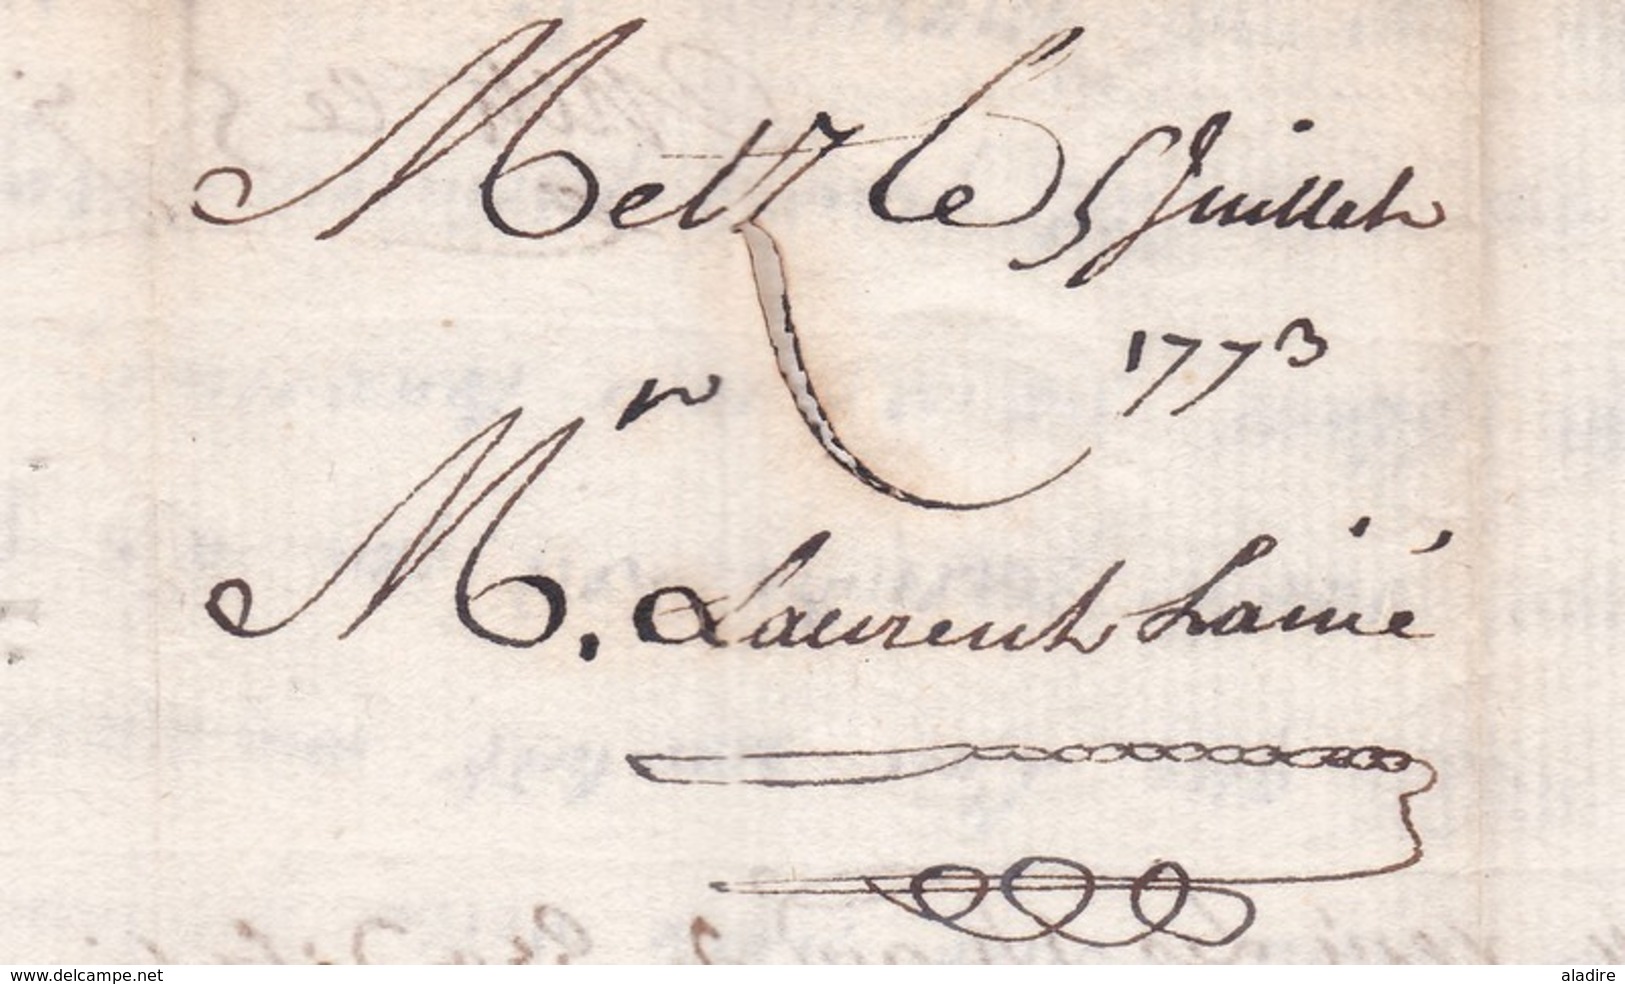 Metz le 5 Juillet
1773
Mr. Laurent Lainé
www.delcampe.net
aladire